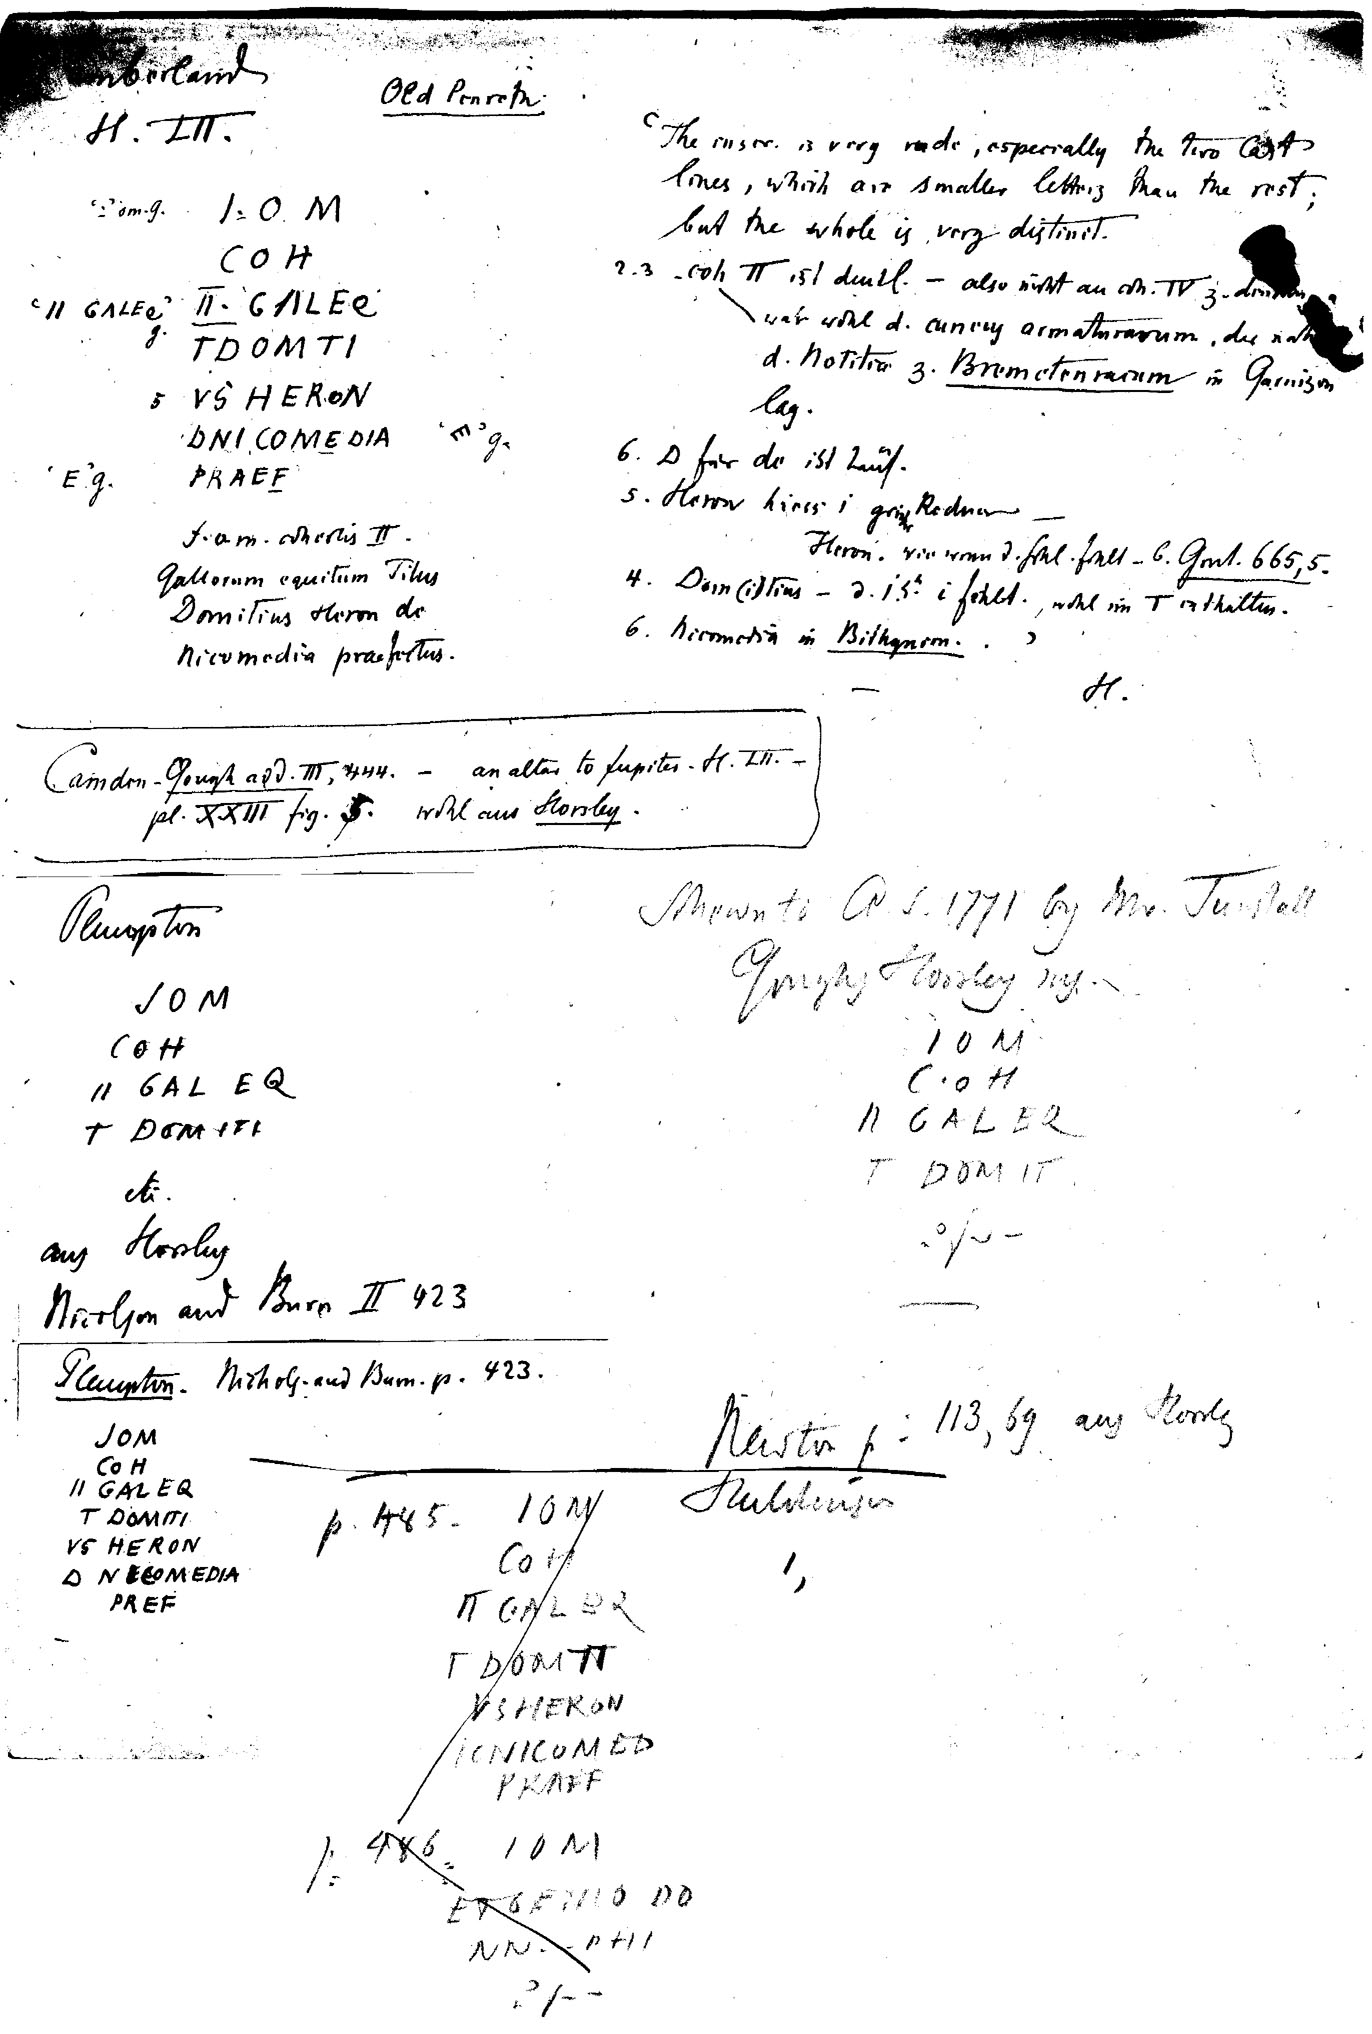 Cumberland
Old Penreth
H. LII.
'.' om. g. I. O. M
COH
'II GALEQ' g. II. GALEQ
TDOMTI
5 VS HERON
DNICOMEDIA 'E' g.
'E' g. PRAEF
cohortis II.
Gallorum equitum Titus
Domitius Heron de
Nicomedia praefectus.
The inscr. is very rude, especially the two last
lines, which are smaller letters than the rest;
but the whole is very distinct.
2.3 coh II ist deutl. – also nicht an coh. IV z.
war wohl d. cuneus armaturarum, der nach
d. Notitia z. Bremetenracum in Garnison
lag.
6. D für de ist häuf.
5. Heron hiess i griech. Redner –
Heron. 6. Grut. 665,5.
4. Dom(i)tius – d. 1st i fehlt, wohl im T enthalten.
6. Nicomedia in Bithynien.
H.
Camden-Gough add. III, 444. – an altar to Jupiter. H. LII. –
pl. XXIII fig. 5. wohl aus Horsley.
Plumpton
JOM
COH
II GAL EQ
T DOMITI
etc.
aus Horsley
Nicolson and Burn II 423
Shewn to A. S. 1771 by Mr. Tunstall
Goughs Horsley
IOM
C.OH
II GALEQ
T DOMIT
Plumpton. Nichols. and Burn. p. 423.
JOM
COH
II GALEQ
T DOMITI
VS HERON
D NICOMEDIA
PREF
p. 113, 69 aus Horsley
p. 485. IOM
COH
II GALEQ
T DOMTI
VSHERON
NICOMED
PRAEF
p. 486. IOM
ET GENIO DD
NN. PHI